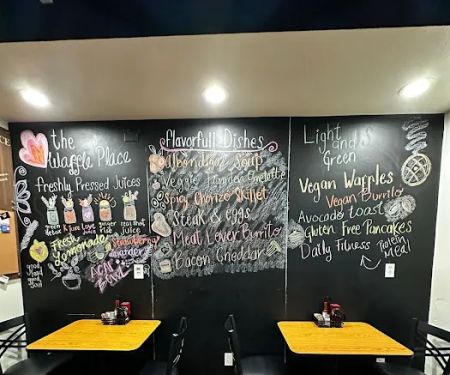 the
Waffle Place
Freshly Pressed Juices
green
K juice
Love
juice
ginger
real fruit
juice
Fresh
Lemonade
Strawberry
lavender
good
vibes
Flavorfull Dishes
Soup
Veggie Omelette
Spicy Chorizo Skillet
Steak & Eggs
Meat Lover Burrito
Bacon Cheddar
Light and
Green
Vegan Waffles
Vegan Burrito
Avocado Toast
Gluten Free Pancakes
Daily Fitness Protein
Meal